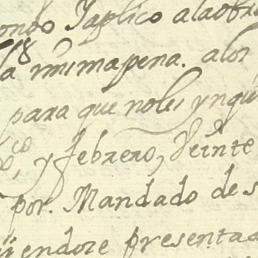 aplico a la
misma pena. a los
para que no les ynqui
y febrero, veinte
por. Mandado de s
endore presentad